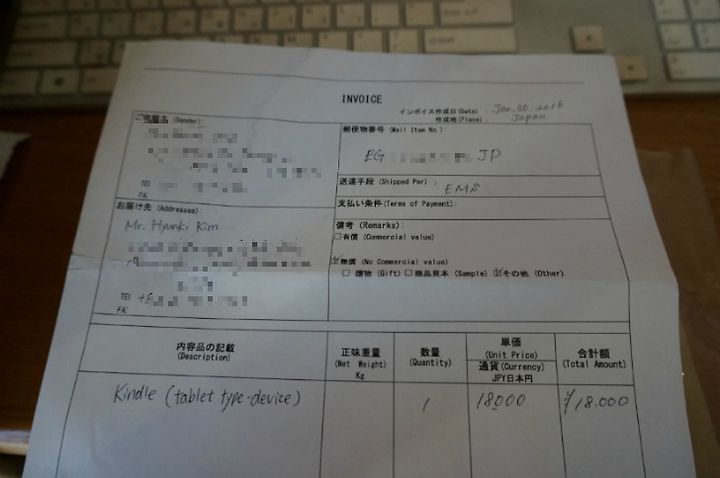 INVOICE
インボイス作成日(Date) : Jan. 30. 2016
作成地(Place) : Japan
ご依頼主 (Sender):
郵便物番号 (Mail Item No.):
EG JP
送達手段 (Shipped Per) : EMS
TEl
FK
お届け先 (Addressee):
支払い条件(Terms of Payment):
Mr. Hyunki Kim
備考 (Remarks):
□有償 (Commercial value)
☑無償 (No Commercial value)
□ 贈物 (Gift) □ 商品見本 (Sample) ☑その他 (Other)
TEl +8
FK
内容品の記載
(Description)
正味重量
(Net Weight)
Kg
数量
(Quantity)
単価
(Unit Price)
通貨(Currency)
JPY日本円
合計額
(Total Amount)
Kindle (tablet type-device) 1 18000 ¥18.000